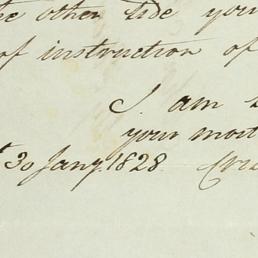 other side you
of instruction of
I am
your most
30 Jany. 1828